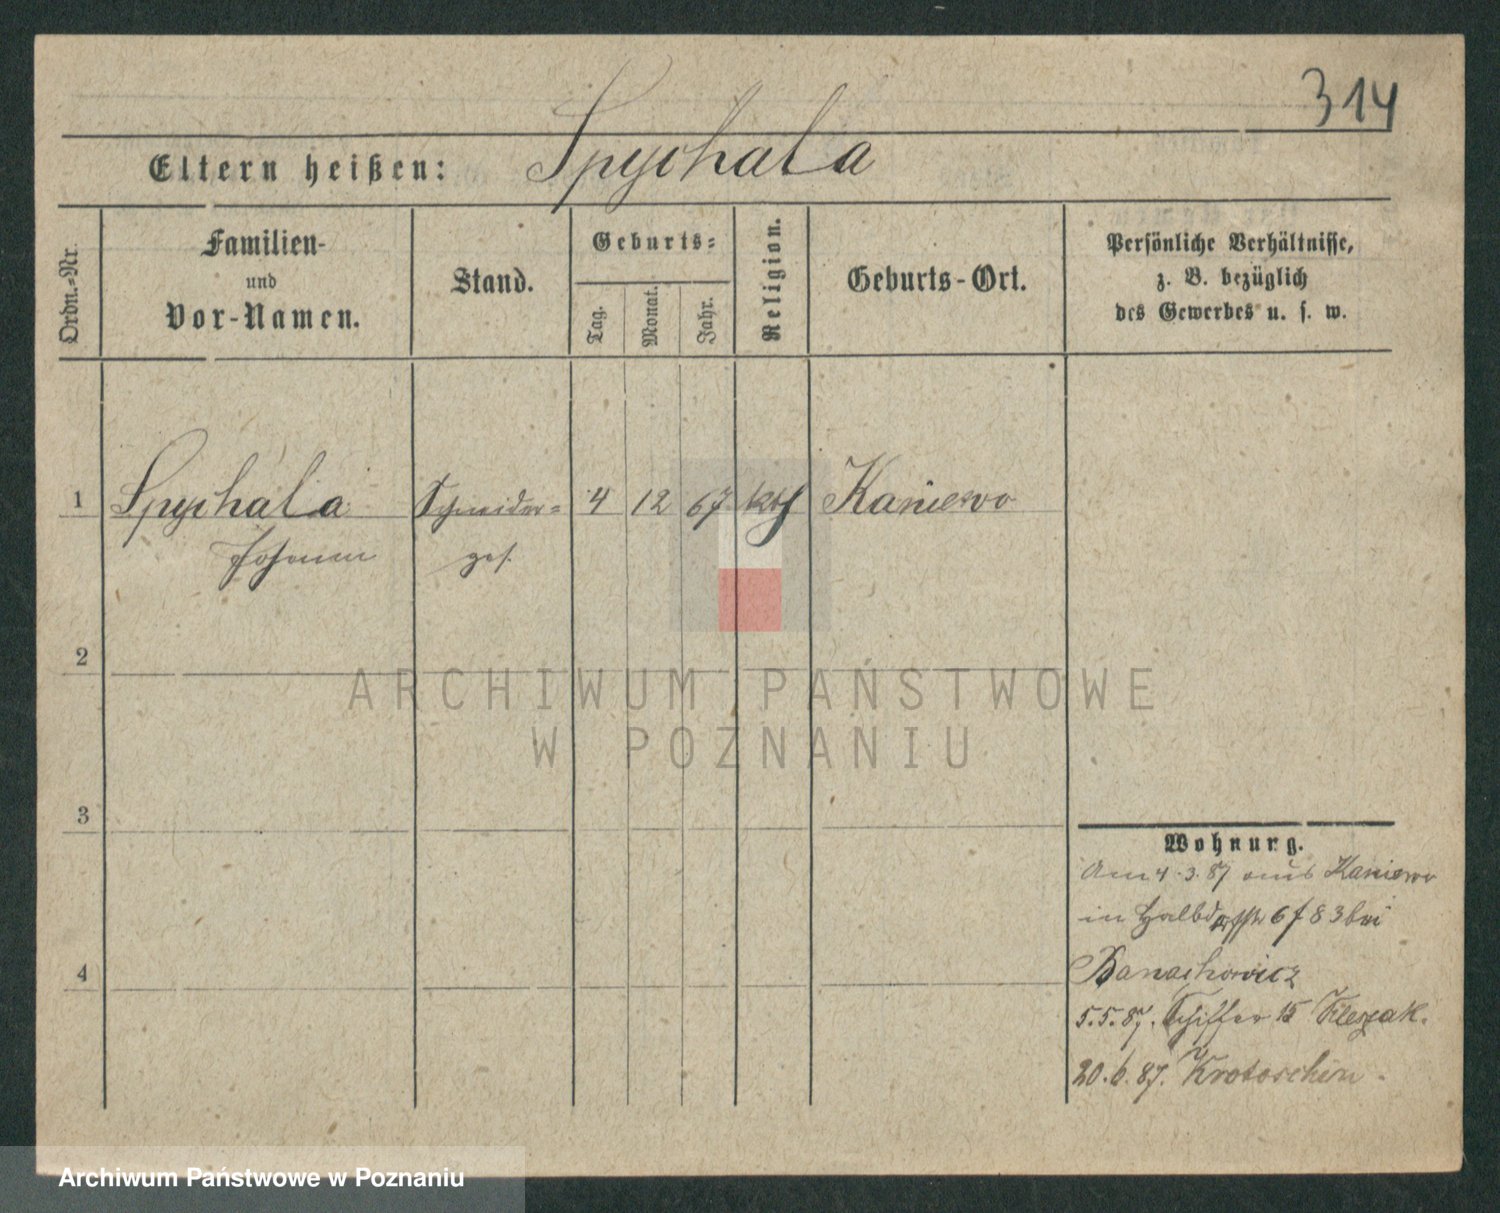 314
Eltern heißen: Spychala
Ordn.-Nr.
Familien-
und
Vor-Namen.
Stand.
Geburts-
Tag.
Monat.
Jahr.
Religion.
Geburts-Ort.
Persönliche Verhältnisse,
z. B. bezüglich
des Gewerbes u. s. w.
1 Spychala Schneider- 4 12 67 kth Kaniewo
Johann ges.
2
ARCHIWUM PAŃSTWOWE
W POZNANIU
3
Wohnung.
Am 4.3.87 aus Kaniewo
in 6 f 83 bei
4
5.5.87. Schiffer 15
20.6.87. Krotoschin.
Archiwum Państwowe w Poznaniu